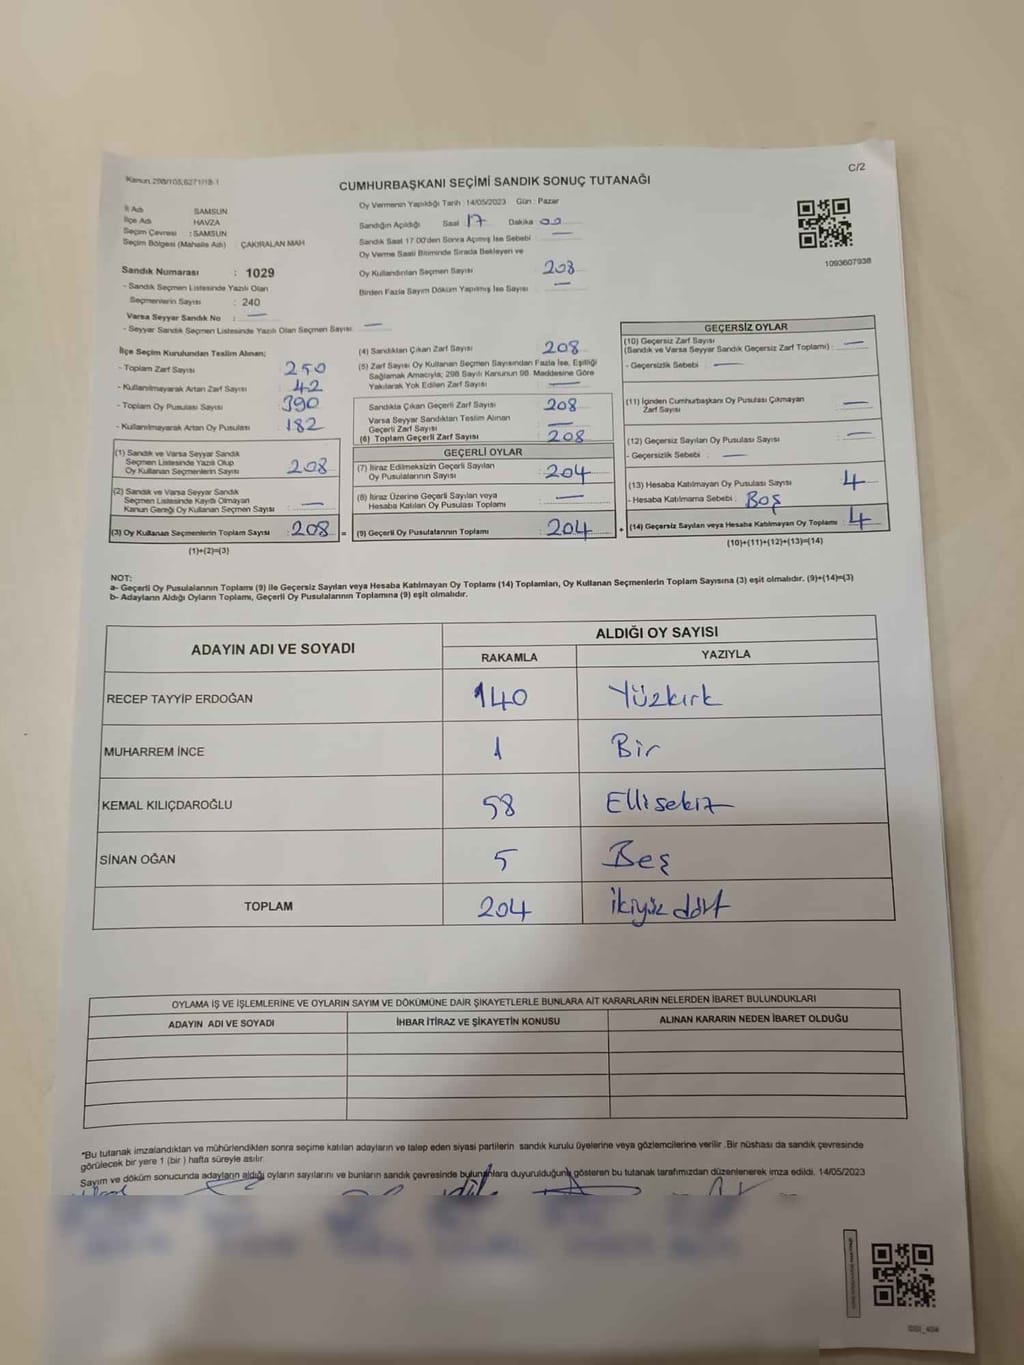 Kanun,298/105,6271/18-1
C/2
CUMHURBAŞKANI SEÇİMİ SANDIK SONUÇ TUTANAĞI
İl Adı SAMSUN
İlçe Adı HAVZA
Seçim Çevresi : SAMSUN
Seçim Bölgesi (Mahalle Adı) : ÇAKIRALAN MAH
Sandık Numarası : 1029
- Sandık Seçmen Listesinde Yazılı Olan
Seçmenlerin Sayısı : 240
Varsa Seyyar Sandık No : —
- Seyyar Sandık Seçmen Listesinde Yazılı Olan Seçmen Sayısı —
Oy Vermenin Yapıldığı Tarih :14/05/2023 Gün : Pazar
Sandığın Açıldığı Saat 17 Dakika 00
Sandık Saat 17:00'den Sonra Açımış İse Sebebi —
Oy Verme Saati Bitiminde Sırada Bekleyen ve
Oy Kullandırılan Seçmen Sayısı 208
Birden Fazla Sayım Döküm Yapılmış İse Sayısı —
1093607938
İlçe Seçim Kurulundan Teslim Alınan;
- Toplam Zarf Sayısı 250
- Kullanılmayarak Artan Zarf Sayısı 42
- Toplam Oy Pusulası Sayısı 390
- Kullanılmayarak Artan Oy Pusulası 182
(1) Sandık ve Varsa Seyyar Sandık
Seçmen Listesinde Yazılı Olup
Oy Kullanan Seçmenlerin Sayısı 208
(2) Sandık ve Varsa Seyyar Sandık
Seçmen Listesinde Kaydı Olmayan
Kanun Gereği Oy Kullanan Seçmen Sayısı —
(3) Oy Kullanan Seçmenlerin Toplam Sayısı : 208 =
(1)+(2)=(3)
(4) Sandıktan Çıkan Zarf Sayısı 208
(5) Zarf Sayısı Oy Kullanan Seçmen Sayısından Fazla İse, Eşitliği
Sağlamak Amacıyla; 298 Sayılı Kanunun 98. Maddesine Göre
Yakılarak Yok Edilen Zarf Sayısı —
Sandıkta Çıkan Geçerli Zarf Sayısı 208
Varsa Seyyar Sandıktan Teslim Alınan
Geçerli Zarf Sayısı —
(6) Toplam Geçerli Zarf Sayısı 208
GEÇERLİ OYLAR
(7) İtiraz Edilmeksizin Geçerli Sayılan
Oy Pusulalarının Sayısı 204
(8) İtiraz Üzerine Geçerli Sayılan veya
Hesaba Katılan Oy Pusulaları Toplamı —
(9) Geçerli Oy Pusulalarının Toplamı 204 +
GEÇERSİZ OYLAR
(10) Geçersiz Zarf Sayısı
(Sandık ve Varsa Seyyar Sandık Geçersiz Zarf Toplamı) : —
- Geçersizlik Sebebi : —
(11) İçinden Cumhurbaşkanı Oy Pusulası Çıkmayan
Zarf Sayısı —
(12) Geçersiz Sayılan Oy Pusulası Sayısı —
- Geçersizlik Sebebi : —
(13) Hesaba Katılmayan Oy Pusulası Sayısı 4
- Hesaba Katılmama Sebebi : Boş
(14) Geçersiz Sayılan veya Hesaba Katılmayan Oy Toplamı 4
(10)+(11)+(12)+(13)=(14)
NOT:
a- Geçerli Oy Pusulalarının Toplamı (9) ile Geçersiz Sayılan veya Hesaba Katılmayan Oy Toplamı (14) Toplamları, Oy Kullanan Seçmenlerin Toplam Sayısına (3) eşit olmalıdır. (9)+(14)=(3)
b- Adayların Aldığı Oyların Toplamı, Geçerli Oy Pusulalarının Toplamına (9) eşit olmalıdır.
ADAYIN ADI VE SOYADI ALDIĞI OY SAYISI
RAKAMLA YAZIYLA
RECEP TAYYİP ERDOĞAN 140 Yüzkırk
MUHARREM İNCE 1 Bir
KEMAL KILIÇDAROĞLU 58 Ellisekiz
SİNAN OĞAN 5 Beş
TOPLAM 204 ikiyüz dört
OYLAMA İŞ VE İŞLEMLERİNE VE OYLARIN SAYIM VE DÖKÜMÜNE DAİR ŞİKAYETLERLE BUNLARA AİT KARARLARIN NELERDEN İBARET BULUNDUKLARI
ADAYIN ADI VE SOYADI İHBAR İTİRAZ VE ŞİKAYETİN KONUSU ALINAN KARARIN NEDEN İBARET OLDUĞU
*Bu tutanak imzalandıktan ve mühürlendikten sonra seçime katılan adayların ve talep eden siyasi partilerin sandık kurulu üyelerine veya gözlemcilerine verilir .Bir nüshası da sandık çevresinde
görülecek bir yere 1 (bir ) hafta süreyle asılır.
Sayım ve döküm sonucunda adayların aldığı oyların sayılarını ve bunların sandık çevresinde bulunanlara duyurulduğunu gösteren bu tutanak tarafımızdan düzenlenerek imza edildi. 14/05/2023